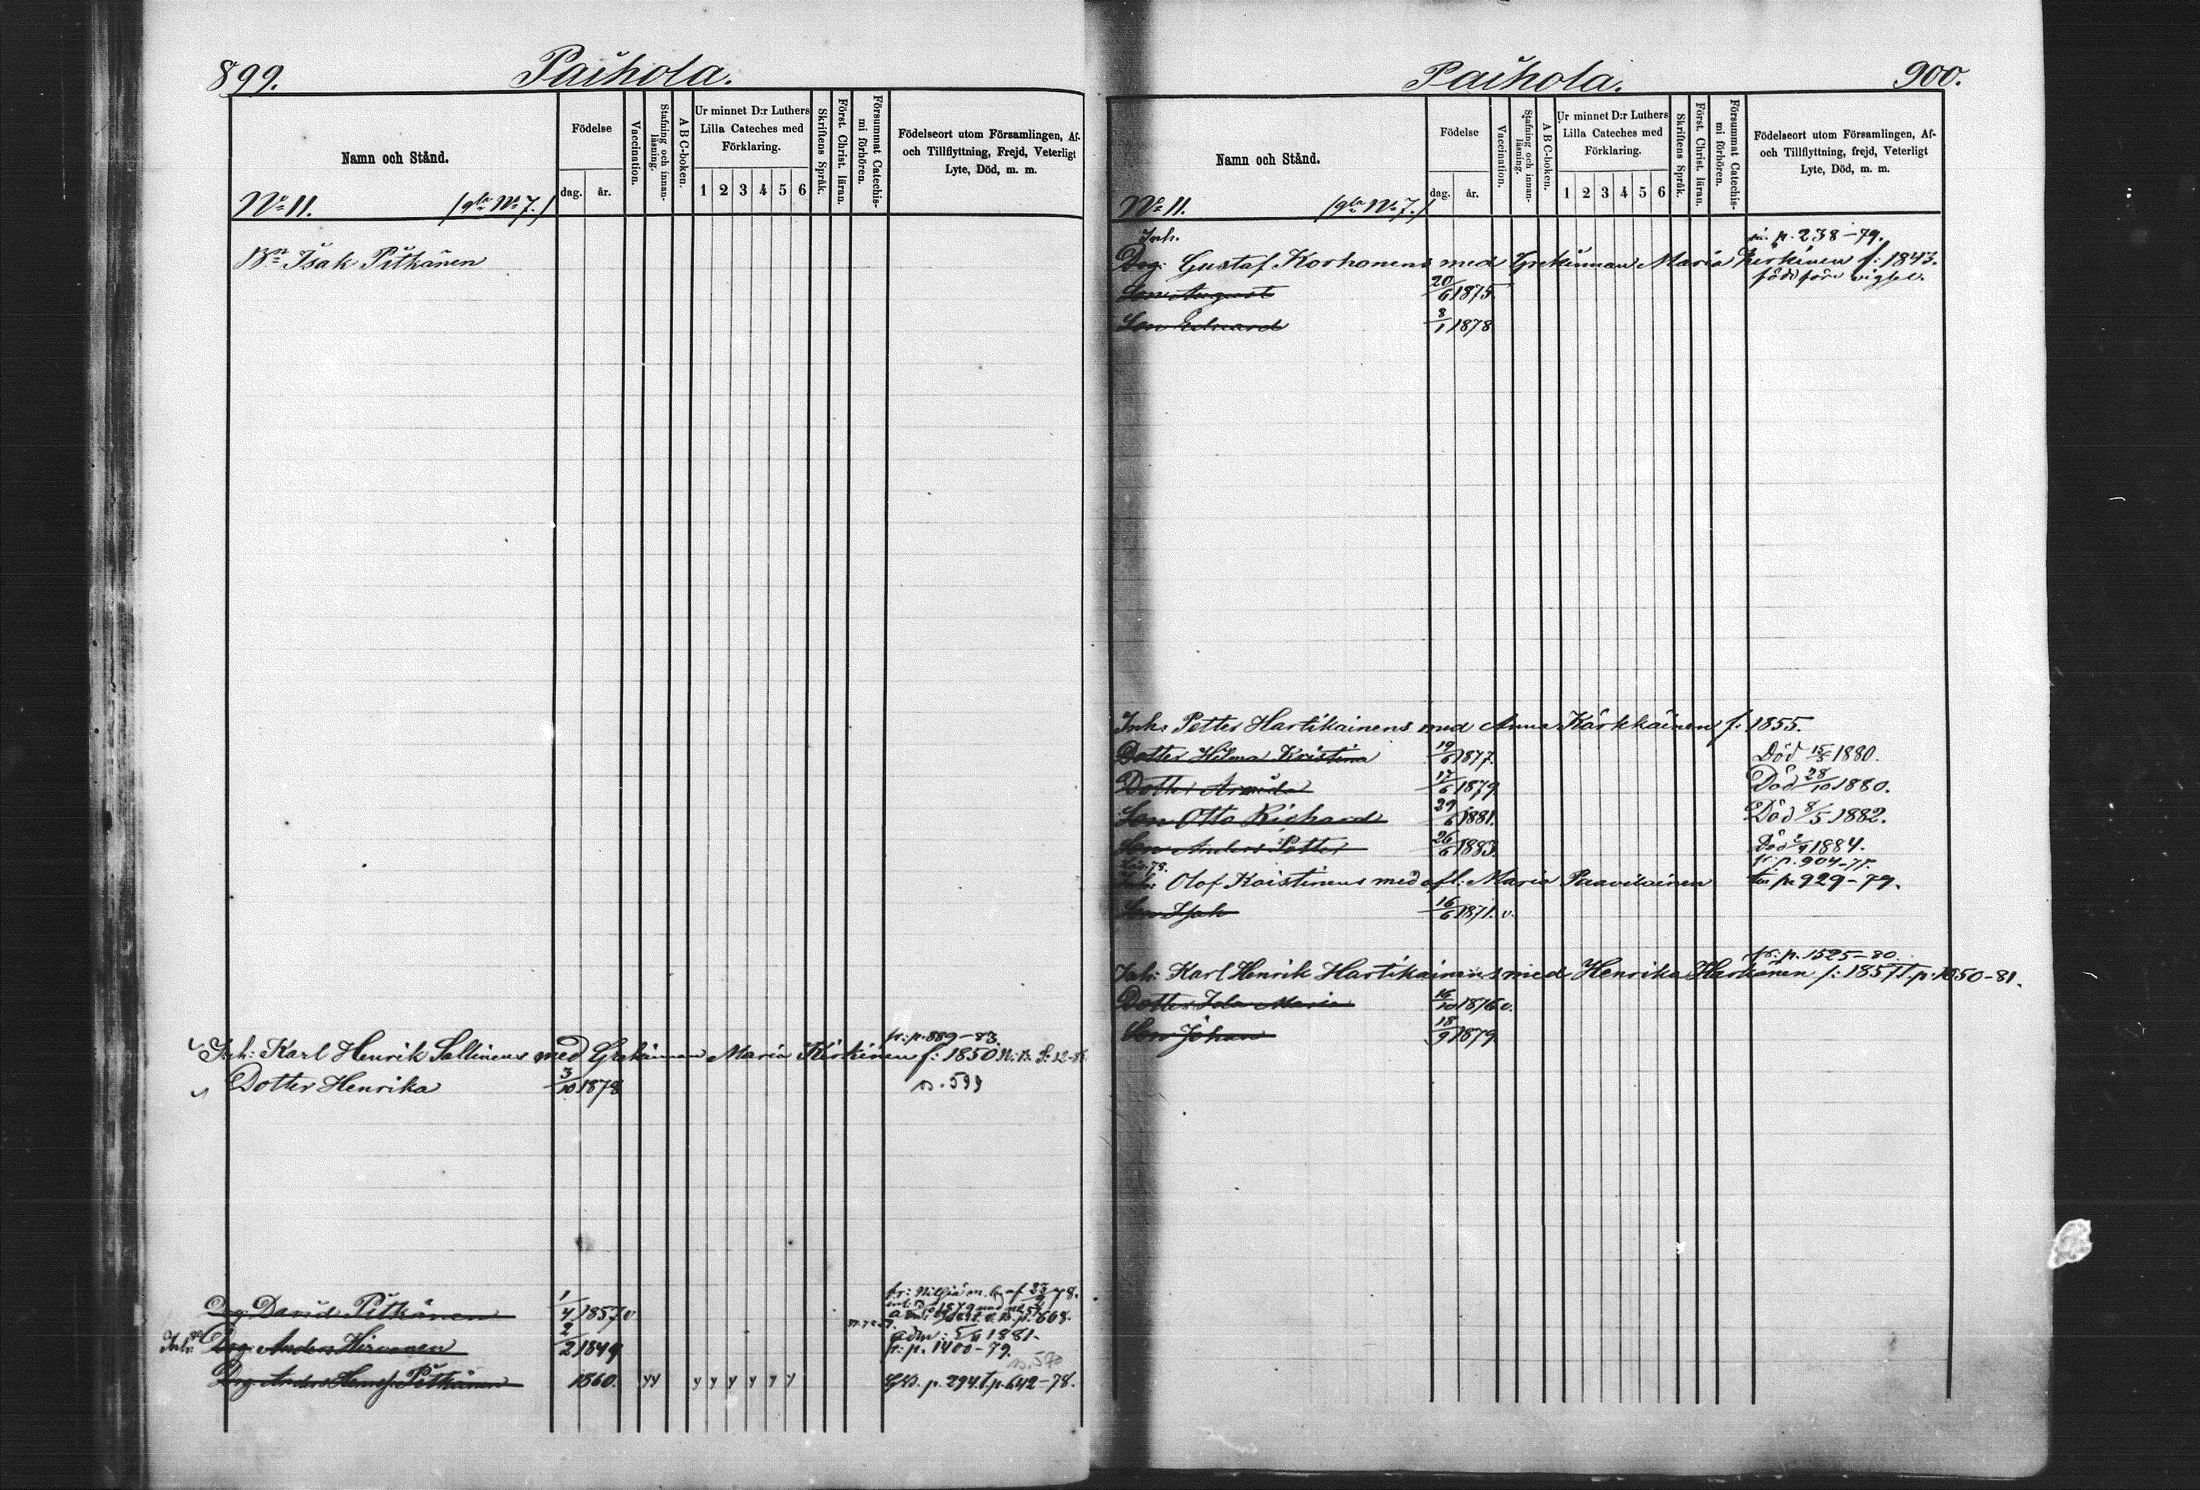 899.
Paihola.
Namn och Stånd.
Födelse
dag. år.
Vaccination.
Stafning och innanläsning.
A B C-boken.
Ur minnet D:r Luthers Lilla Cateches med Förklaring.
1 2 3 4 5 6
Skriftens Språk.
Först. Christ. läran.
Försummat Catechismi förhören.
Födelseort utom Församlingen, Af- och Tillflyttning, Frejd, Veterligt Lyte, Död, m. m.
No 11. (gla No 7.)
Bn Isak Pitkänen
fr: p. 889-83.
Inh: Karl Henrik Sallinens med Grekinnan Maria Kärkinen f: 1850
Dotter Henrika 3/10 1878 s. 599
Drg David Pitkänen 1/4 1857 v
Inh: Drg Anders Hirvonen 2/2 1849 adm: 1881.
fr: p. 1400-79.
s. 570
Drg Anders Henrs: Pitkänen 1860. y y y y y y y y GB. p. 294. t. p. 642-78.
900.
Paihola.
Namn och Stånd.
Födelse
dag. år.
Vaccination.
Stafning och innanläsning.
A B C-boken.
Ur minnet D:r Luthers Lilla Cateches med Förklaring.
1 2 3 4 5 6
Skriftens Språk.
Först. Christ. läran.
Försummat Catechismi förhören.
Födelseort utom Församlingen, Af- och Tillflyttning, frejd, Veterligt Lyte, Död, m. m.
No 11. (gla No 7.)
Inh. p. 238-79.
Drg: Gustaf Korhonens med Grekinnan Maria f: 1843.
Son August 20/6 1875 född före vigsel.
Son Eduard 8/1 1878
Inh: Petter Hartikainens med Anna Kärkkäinen f: 1855.
Dotter Hilma Kristina 19/6 1877. Död 15/5 1880.
Dotter Armida 17/6 1879 Död 28/10 1880.
Son Otto Richard 29/6 1881. Död 8/5 1882.
Son Anders Petter 26/6 1883 Död 1884.
fr: p. 904-77.
Inh: Olof Koistinens med afl: Maria Paavilainen p. 929-79.
Son Isak 16/6 1871. v.
fr: p. 1525-80.
Inh: Karl Henrik Hartikainens med Henrika f: 1857 t. p. 1050-81.
Dotter Ida Maria 16/10 1876 v.
Son Johan 18/9 1879